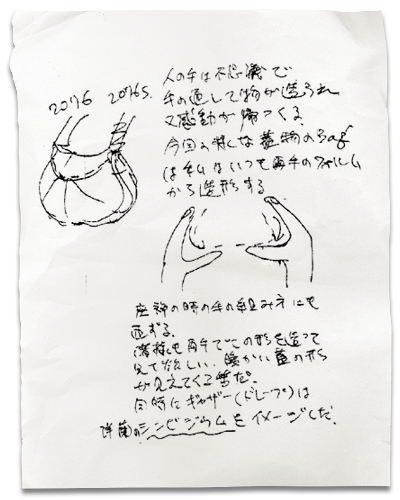 2076 2076S.
人の手は不思議で
手の通して物が造られ
又感動が帰つくる
今回の様な蓋物のbag
は私はいつも両手のフォルム
から造形する
座禅の時の手の組み方にも
通ずる.
皆様も両手でこの形を造って
見て欲しい. 暖かい蓋の形
が見えてくる筈だ.
同時にギャザー(ドレープ)は
洋蘭のシンビジウムをイメージした.